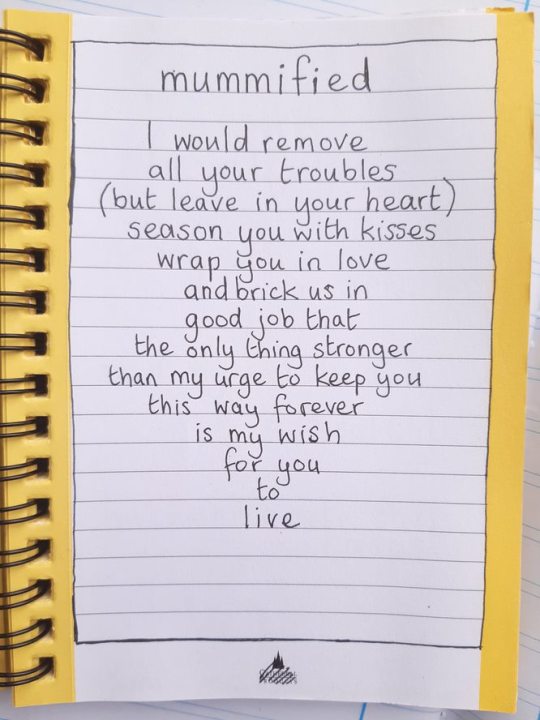 mummified
I would remove
all your troubles
(but leave in your heart)
season you with kisses
wrap you in love
and brick us in
good job that
the only thing stronger
than my urge to keep you
this way forever
is my wish
for you
to
live